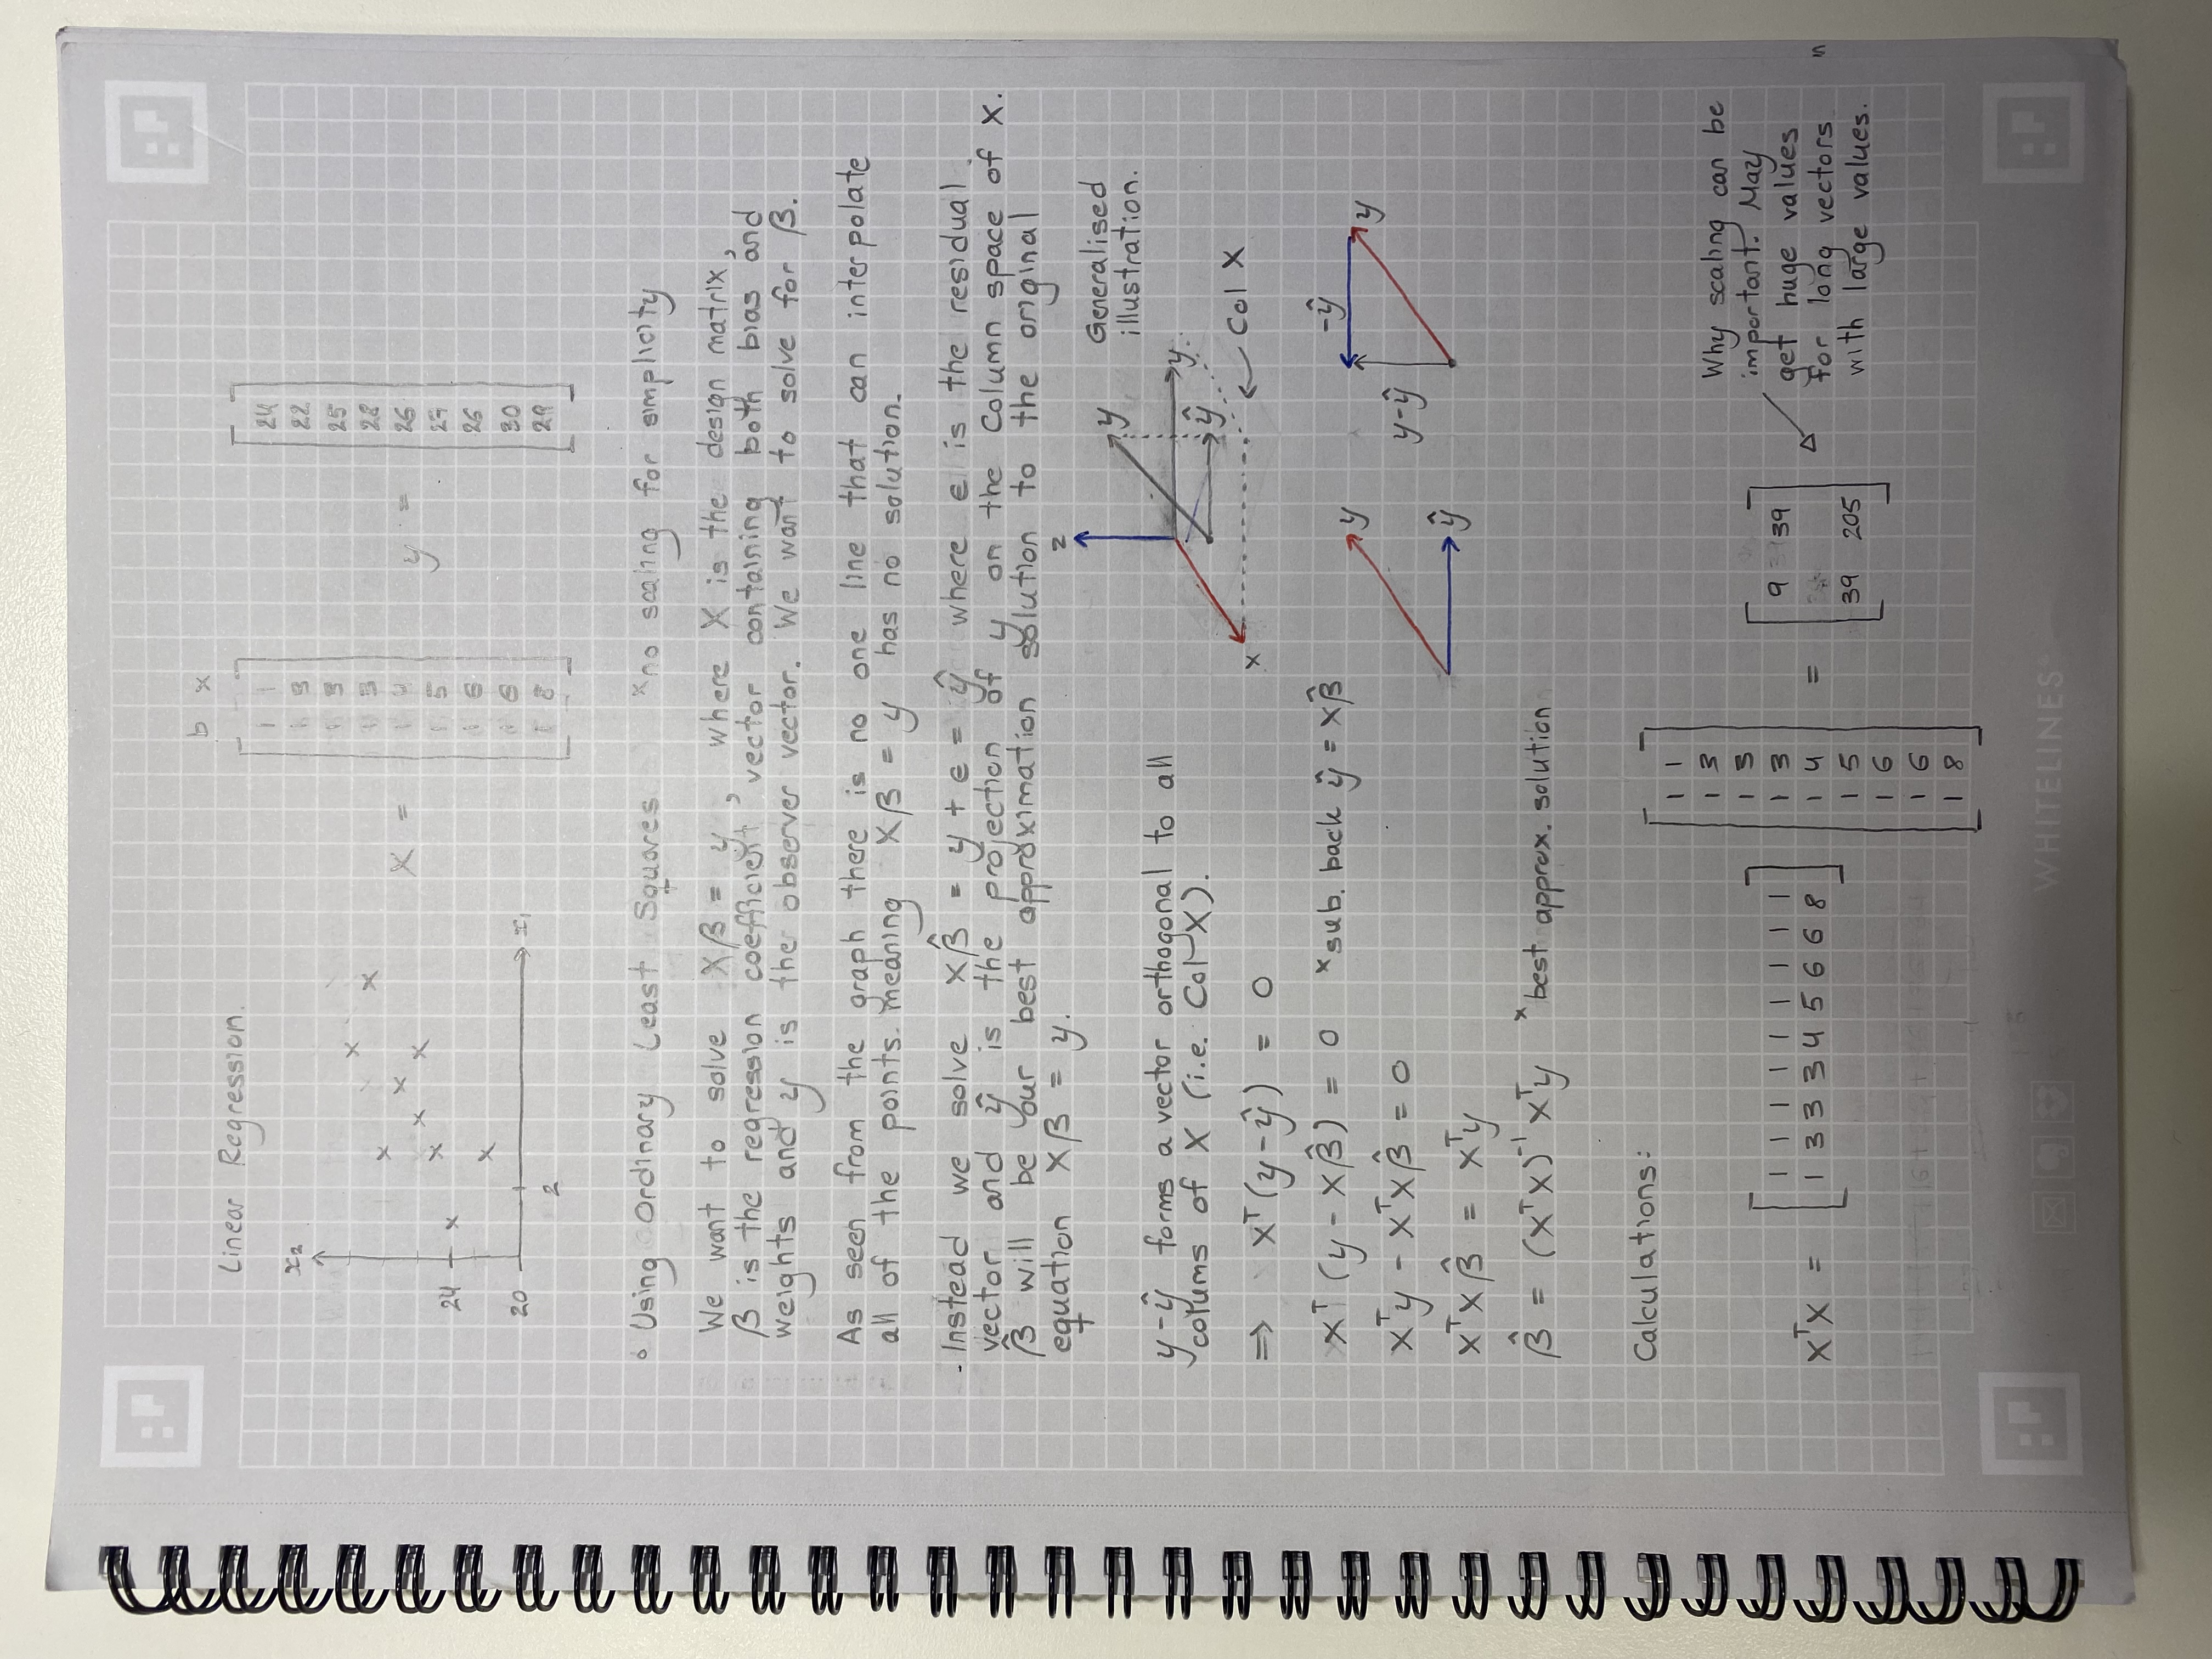 b x
Linear Regression.
x₂
24
20
2
x₁
X =
1 1
1 3
1 3
1 3
1 4
1 5
1 6
1 6
1 8
y =
24
22
25
28
26
27
26
30
29
Using Ordinary Least Squares ˣno scaling for simplicity
We want to solve Xβ = y, where X is the design matrix,
β is the regression coefficient vector containing both bias and
weights and y is the observer vector. We want to solve for β.
As seen from the graph there is no one line that can interpolate
all of the points. meaning Xβ = y has no solution.
Instead we solve Xβ̂ = y + ϵ = ŷ where ϵ is the residual
vector and ŷ is the projection of y on the Column space of X.
β̂ will be our best approximation solution to the original
equation Xβ = y.
z
y
y
ŷ
x
Col X
Generalised
illustration.
y-ŷ forms a vector orthogonal to all
colums of X (i.e. Col X).
⇒ Xᵀ(y-ŷ) = 0
Xᵀ(y - Xβ̂) = 0 ˣsub. back ŷ = Xβ̂
Xᵀy - XᵀXβ̂ = 0
XᵀXβ̂ = Xᵀy
β̂ = (XᵀX)⁻¹Xᵀy ˣbest approx. solution
y
ŷ
-ŷ
y-ŷ
y
Calculations:
XᵀX =
1 1 1 1 1 1 1 1 1
1 3 3 3 4 5 6 6 8
1 1
1 3
1 3
1 3
1 4
1 5
1 6
1 6
1 8
=
9 39
39 205
Why scaling can be
important. May
get huge values
for long vectors
with large values.
WHITELINES®